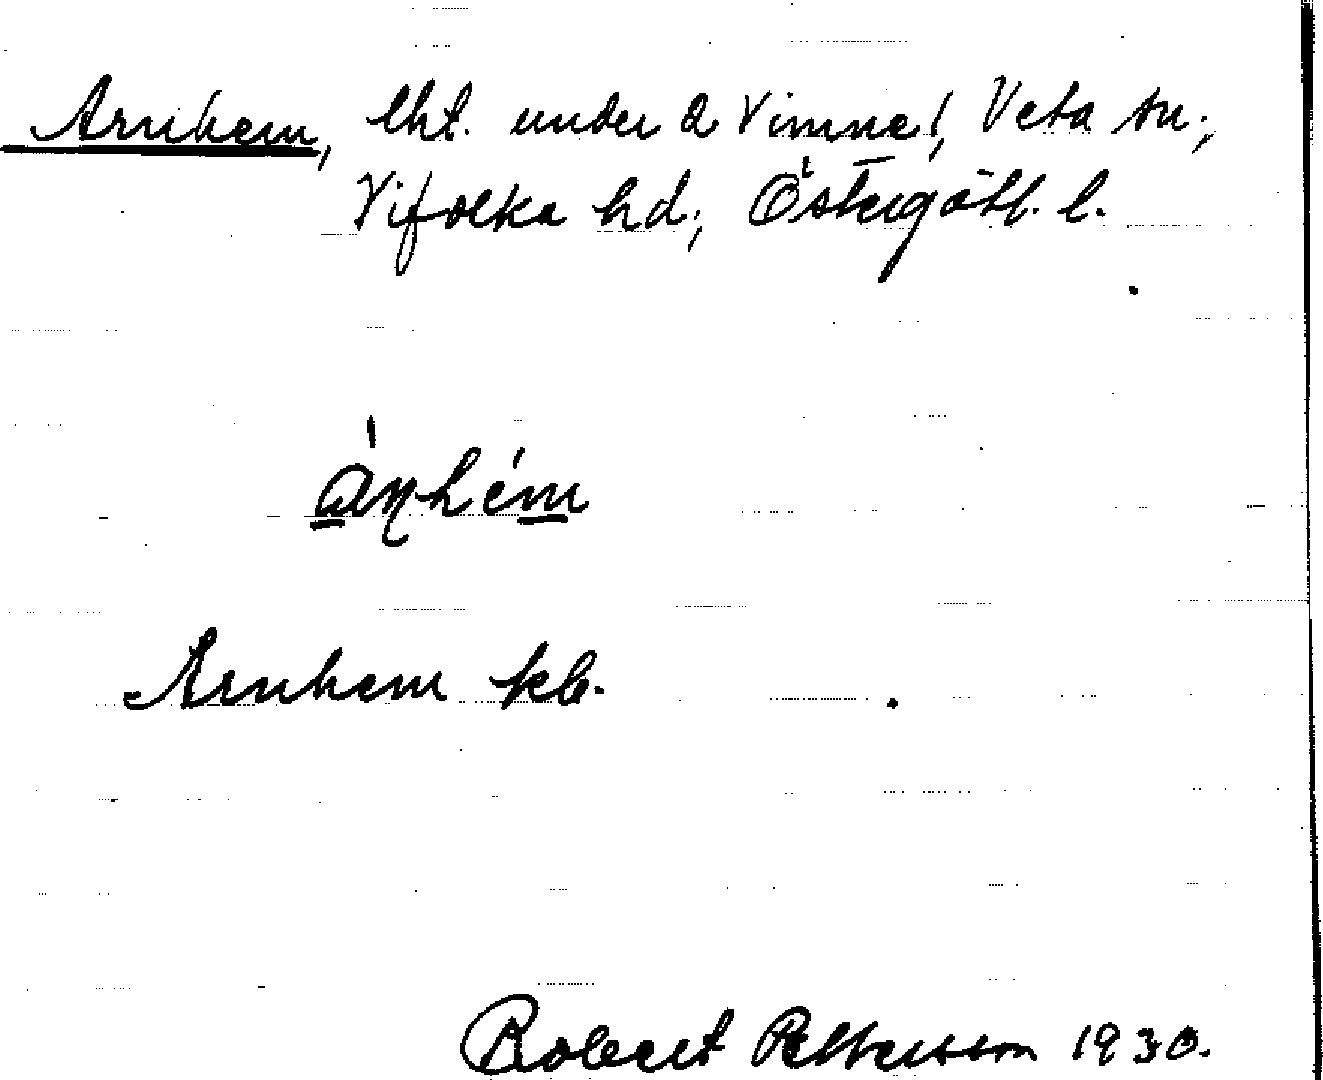 Arnhem, lht. under 2 Vimne!, Veta sn.,
Vifolka hd., Östergötl. l.
Arnhem kb.
Robert Pettersson 1930.